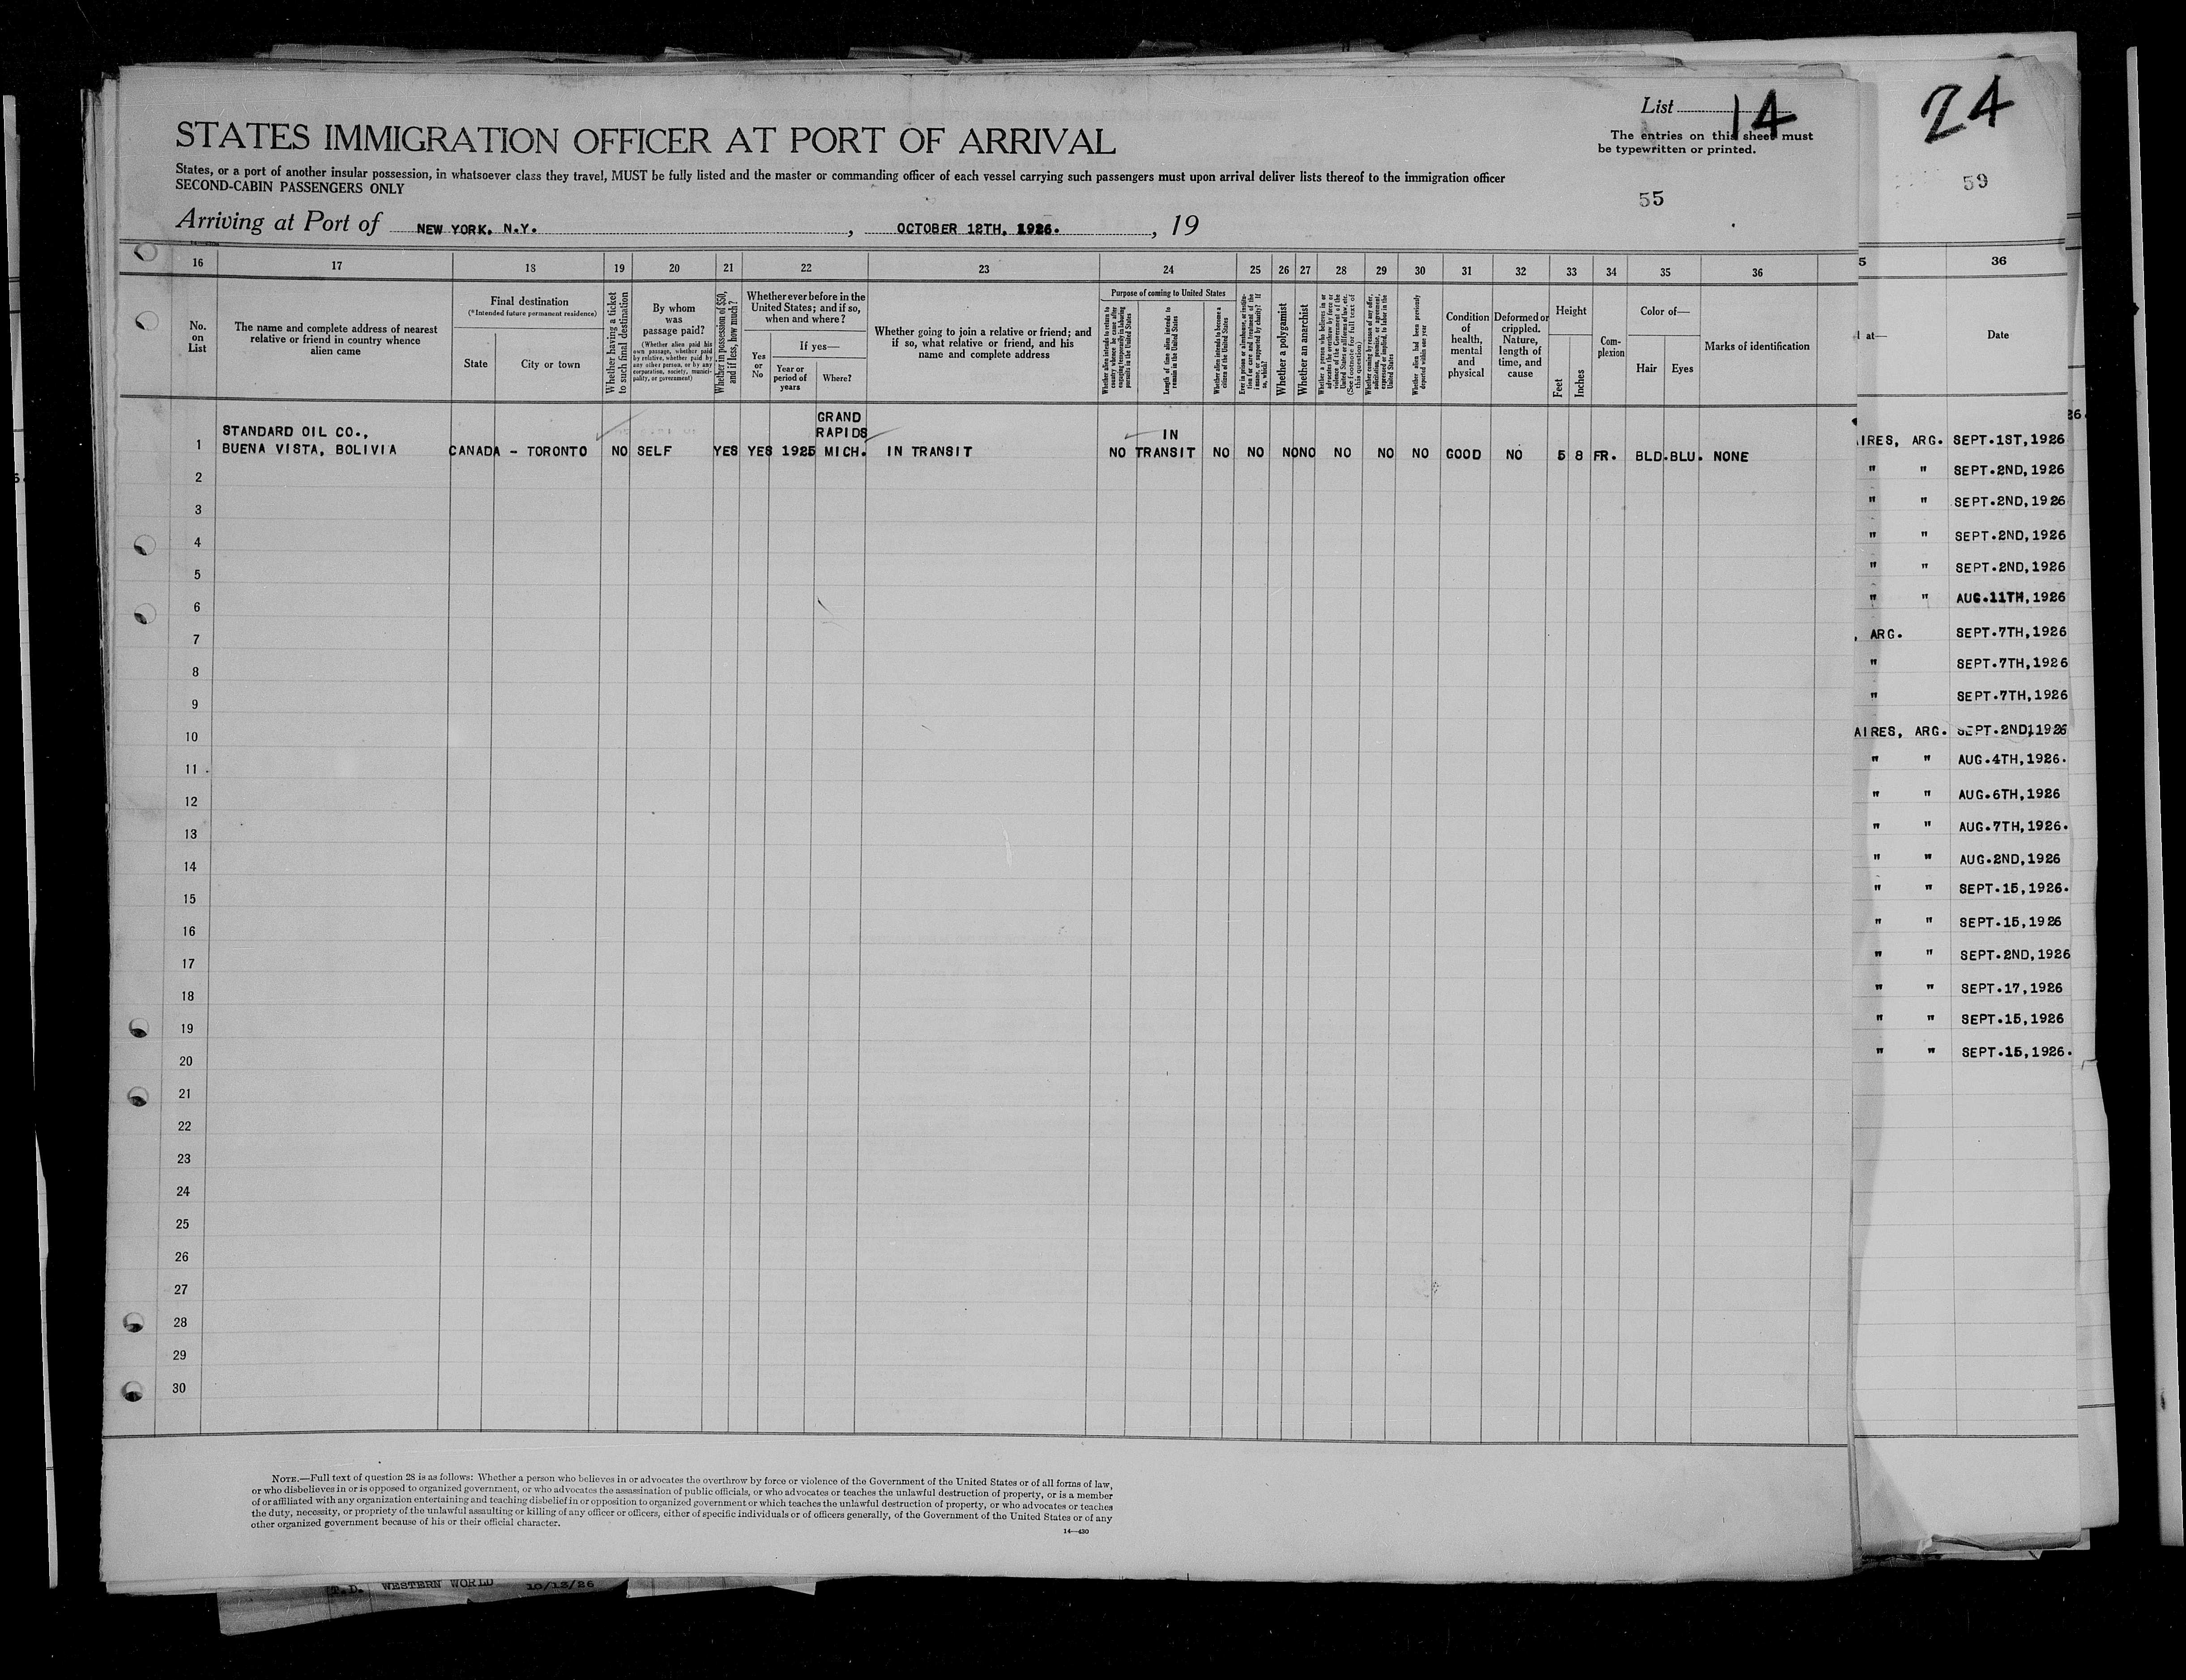 List 14
The entries on this sheet must
be typewritten or printed.
24
STATES IMMIGRATION OFFICER AT PORT OF ARRIVAL
States, or a port of another insular possession, in whatsoever class they travel, MUST be fully listed and the master or commanding officer of each vessel carrying such passengers must upon arrival deliver lists thereof to the immigration officer
SECOND-CABIN PASSENGERS ONLY
55
59
Arriving at Port of NEW YORK. N.Y. , OCTOBER 12TH, 1926. , 19
16 17 18 19 20 21 22 23 24 25 26 27 28 29 30 31 32 33 34 35 36
5 36
No. on List
The name and complete address of nearest relative or friend in country whence alien came
Final destination
(*Intended future permanent residence)
State City or town
Whether having a ticket to such final destination
By whom was passage paid?
(Whether alien paid his own passage, whether paid by relative, whether paid by any other person, or by any corporation, society, municipality, or government)
Whether in possession of $50, and if less, how much?
Whether ever before in the United States; and if so, when and where?
Yes or No
If yes—
Year or period of years
Where?
Whether going to join a relative or friend; and if so, what relative or friend, and his name and complete address
Purpose of coming to United States
Whether alien intends to return to country whence he came after engaging temporarily in laboring pursuits in the United States
Length of time alien intends to remain in the United States
Whether alien intends to become a citizen of the United States
Whether a polygamist
Whether an anarchist
(See footnote for full text of this question)
Whether coming by reason of any offer, solicitation, promise, or agreement, expressed or implied, to labor in the United States
Whether alien had been previously deported within one year
Condition of health, mental and physical
Deformed or crippled. Nature, length of time, and cause
Height
Feet Inches
Complexion
Color of—
Hair Eyes
Marks of identification
at—
Date
1 STANDARD OIL CO., BUENA VISTA, BOLIVIA CANADA - TORONTO NO SELF YES YES 1925 GRAND RAPIDS MICH. IN TRANSIT NO IN TRANSIT NO NO NO NO NO NO NO GOOD NO 5 8 FR. BLD. BLU. NONE
2
3
4
5
6
7
8
9
10
11
12
13
14
15
16
17
18
19
20
21
22
23
24
25
26
27
28
29
30
26.
IRES, ARG. SEPT.1ST,1926
" " SEPT.2ND,1926
" " SEPT.2ND,1926
" " SEPT.2ND,1926
" " SEPT.2ND,1926
" " AUG.11TH,1926
, ARG. SEPT.7TH,1926
" SEPT.7TH,1926
" SEPT.7TH,1926
AIRES, ARG. SEPT.2ND,1926
" " AUG.4TH,1926.
" " AUG.6TH,1926
" " AUG.7TH,1926.
" " AUG.2ND,1926
" " SEPT.15,1926.
" " SEPT.15,1926
" " SEPT.2ND,1926
" " SEPT.17,1926
" " SEPT.15,1926
" " SEPT.15,1926.
NOTE.—Full text of question 28 is as follows: Whether a person who believes in or advocates the overthrow by force or violence of the Government of the United States or of all forms of law,
or who disbelieves in or is opposed to organized government, or who advocates the assassination of public officials, or who advocates or teaches the unlawful destruction of property, or is a member
of or affiliated with any organization entertaining and teaching disbelief in or opposition to organized government or which teaches the unlawful destruction of property, or who advocates or teaches
the duty, necessity, or propriety of the unlawful assaulting or killing of any officer or officers, either of specific individuals or of officers generally, of the Government of the United States or of any
other organized government because of his or their official character.
14—430
T.D. WESTERN WORLD 10/12/26